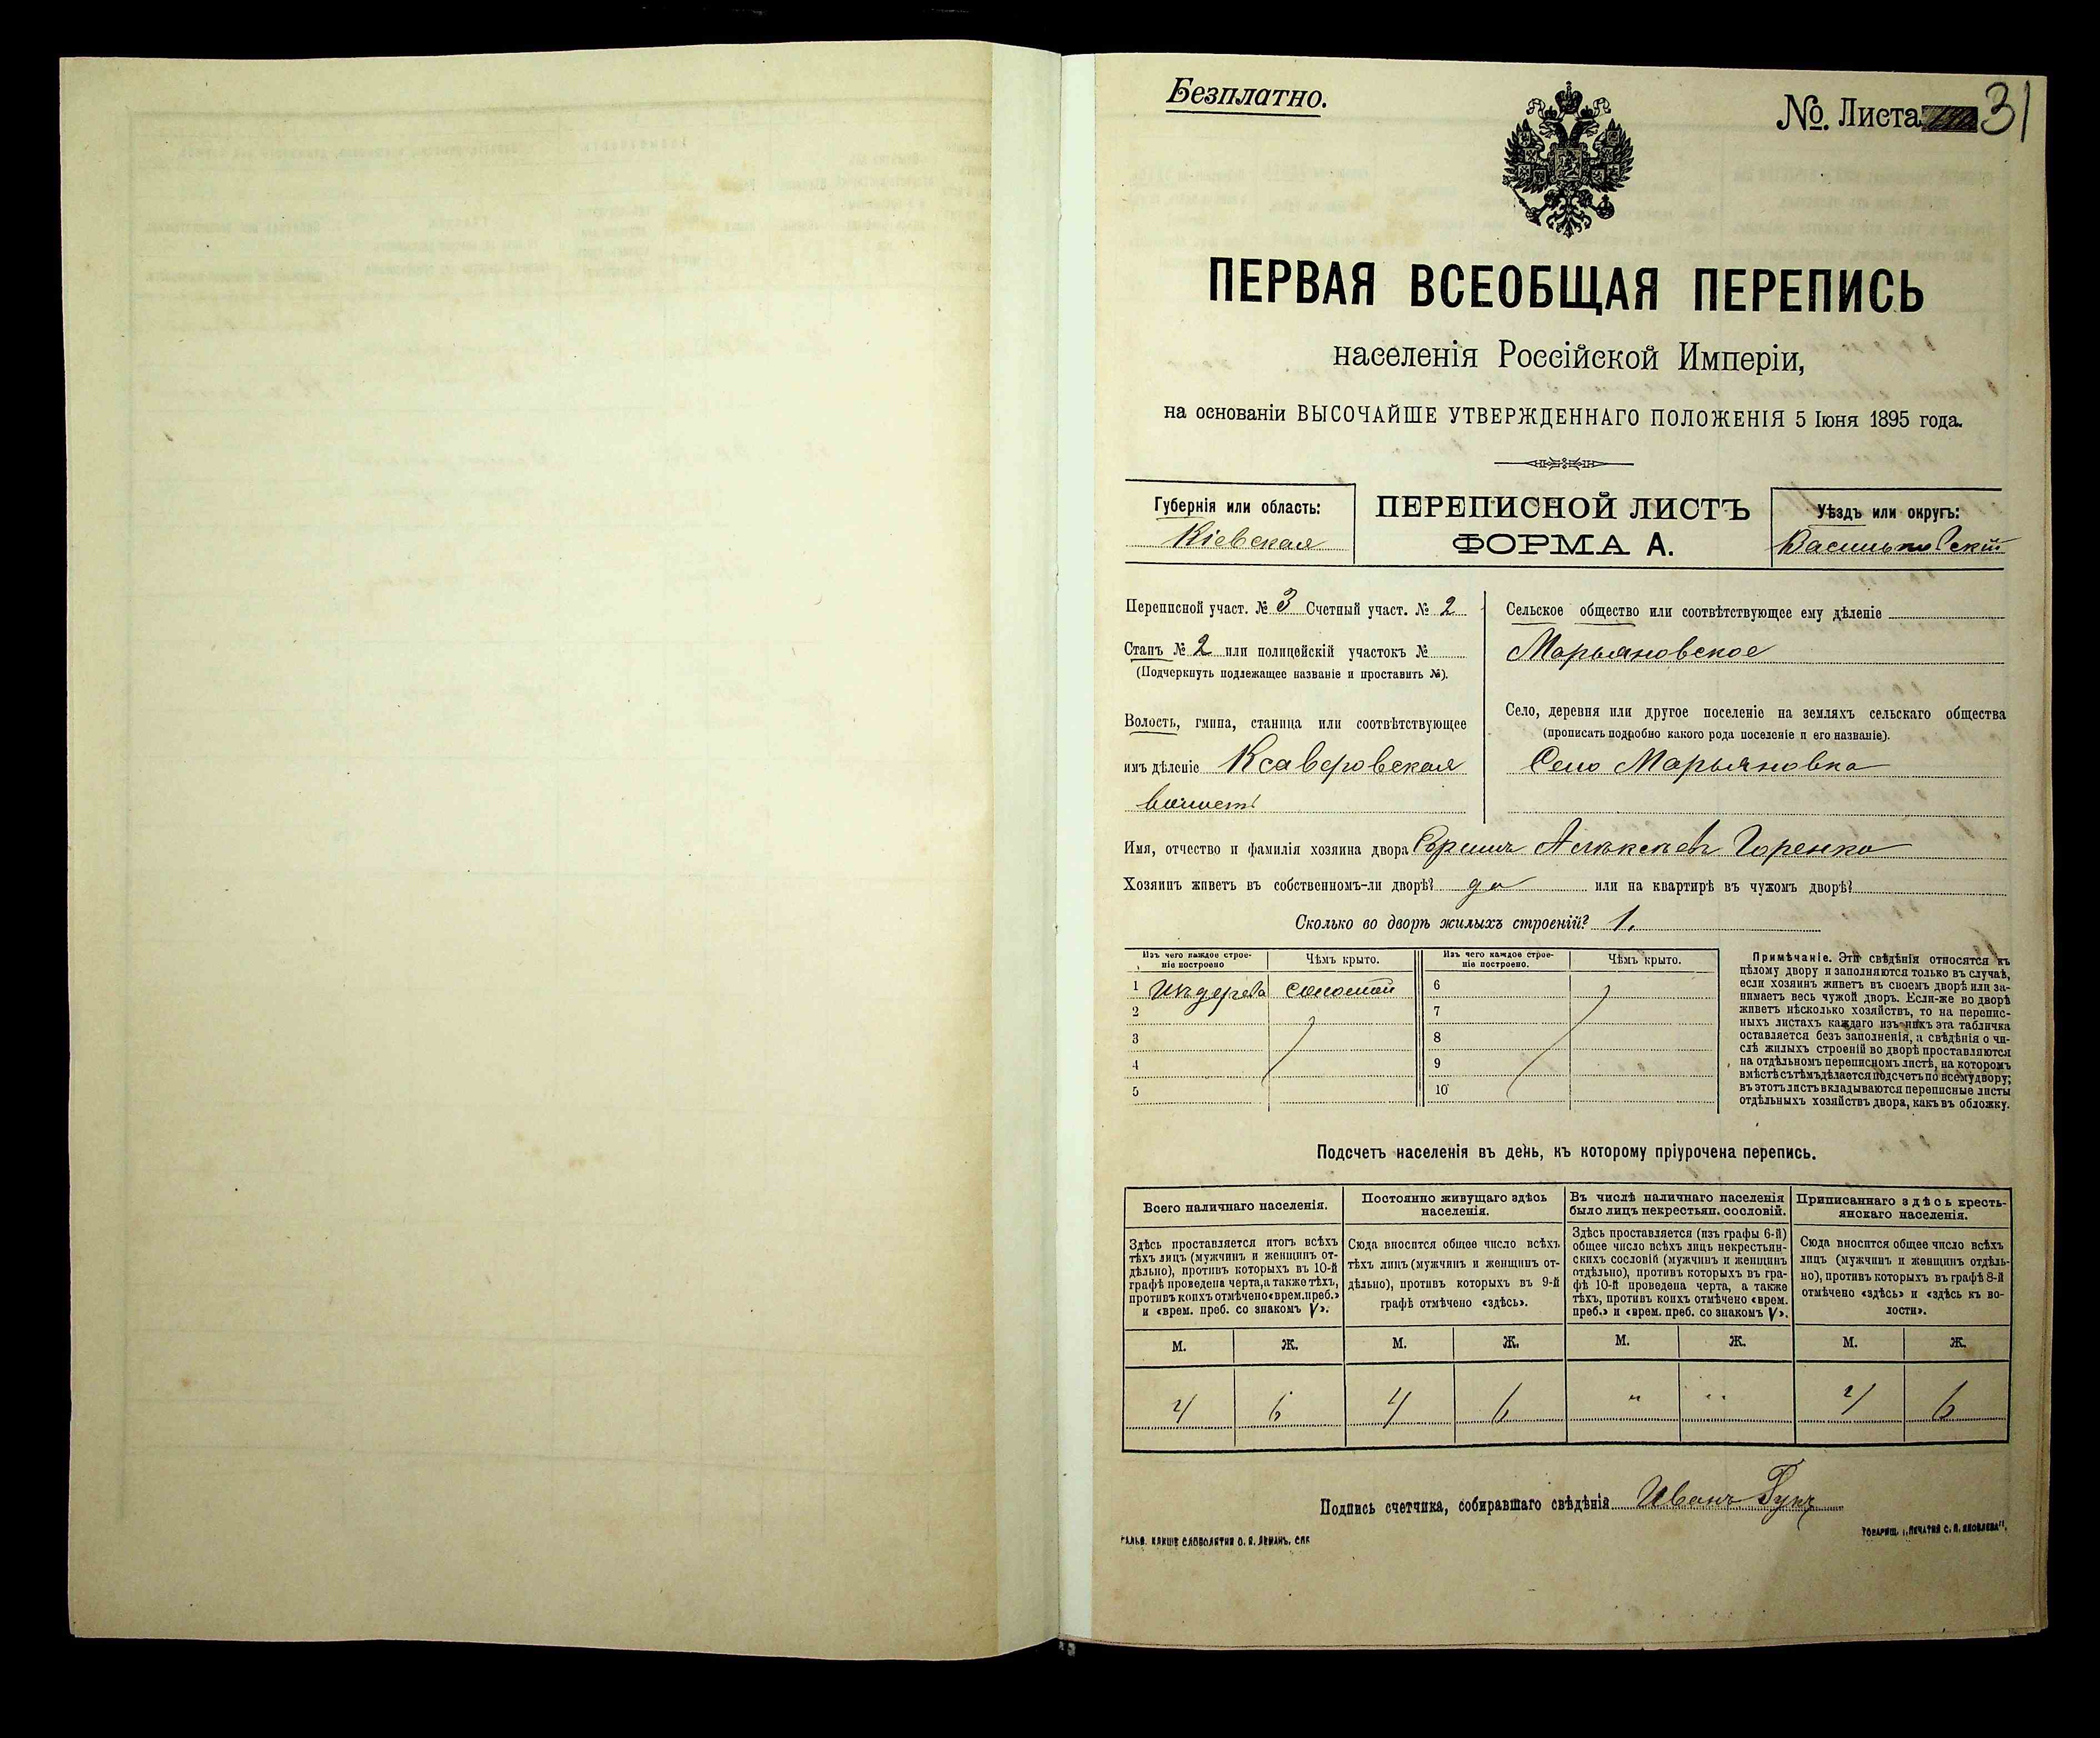 Безплатно.
№. Листа 31
ПЕРВАЯ ВСЕОБЩАЯ ПЕРЕПИСЬ
населенія Россійской Имперіи,
на основаніи ВЫСОЧАЙШЕ УТВЕРЖДЕННАГО ПОЛОЖЕНІЯ 5 Іюня 1895 года.
Губернія или область:
Кіевская
ПЕРЕПИСНОЙ ЛИСТЪ
ФОРМА А.
Уѣздъ или округъ:
Васильковскій
Переписной участ. № 3 Счетный участ. № 2
Станъ № 2 или полицейскій участокъ №
(Подчеркнуть подлежащее названіе и проставить №).
Волость, гмина, станица или соотвѣтствующее
имъ дѣленіе Ксаверовская
волость
Сельское общество или соотвѣтствующее ему дѣленіе
Марьяновское
Село, деревня или другое поселеніе на земляхъ сельскаго общества
(прописать подробно какого рода поселеніе и его названіе).
Село Марьяновка
Имя, отчество и фамилія хозяина двора Горенко
Хозяинъ живетъ въ собственномъ-ли дворѣ? да или на квартирѣ въ чужомъ дворѣ?
Сколько во дворѣ жилыхъ строеній? 1.
Изъ чего каждое строе-
ніе построено
Чѣмъ крыто.
Изъ чего каждое строе-
ніе построено.
Чѣмъ крыто.
1 Изъ дерева соломой 6
2 7
3 8
4 9
5 10
Примѣчаніе. Эти свѣдѣнія относятся къ
цѣлому двору и заполняются только въ случаѣ,
если хозяинъ живетъ въ своемъ дворѣ или за-
нимаетъ весь чужой дворъ. Если-же во дворѣ
живетъ нѣсколько хозяйствъ, то на перепис-
ныхъ листахъ каждаго изъ нихъ эта табличка
оставляется безъ заполненія, а свѣдѣнія о чи-
слѣ жилыхъ строеній во дворѣ проставляются
на отдѣльномъ переписномъ листѣ, на которомъ
вмѣстѣ съ тѣмъ дѣлается подсчетъ по всему двору;
въ этотъ листъ вкладываются переписные листы
отдѣльныхъ хозяйствъ двора, какъ въ обложку.
Подсчетъ населенія въ день, къ которому пріурочена перепись.
Всего наличнаго населенія.
Постоянно живущаго здѣсь
населенія.
Въ числѣ наличнаго населенія
было лицъ некрестьян. сословій.
Приписаннаго здѣсь кресть-
янскаго населенія.
Здѣсь проставляется итогъ всѣхъ
тѣхъ лицъ (мужчинъ и женщинъ от-
дѣльно), противъ которыхъ въ 10-й
графѣ проведена черта, а также тѣхъ,
противъ коихъ отмѣчено «врем. преб.»
и «врем. преб. со знакомъ V».
Сюда вносится общее число всѣхъ
тѣхъ лицъ (мужчинъ и женщинъ от-
дѣльно), противъ которыхъ въ 9-й
графѣ отмѣчено «здѣсь».
Здѣсь проставляется (изъ графы 6-й)
общее число всѣхъ лицъ некрестьян-
скихъ сословій (мужчинъ и женщинъ
отдѣльно), противъ которыхъ въ гра-
фѣ 10-й проведена черта, а также
тѣхъ, противъ коихъ отмѣчено «врем.
преб.» и «врем. преб. со знакомъ V».
Сюда вносится общее число всѣхъ
лицъ (мужчинъ и женщинъ отдѣль-
но), противъ которыхъ въ графѣ 8-й
отмѣчено «здѣсь» и «здѣсь къ во-
лости».
М. Ж. М. Ж. М. Ж. М. Ж.
4 6 4 6 " " 4 6
Подпись счетчика, собиравшаго свѣдѣнія Иванъ
ГАЛЬВ. КЛИШЕ СЛОВОЛИТНИ О. И. ЛЕМАНЪ, СПБ
ТОВАРИЩ. „ПЕЧАТНЯ С. П. ЯКОВЛЕВА".